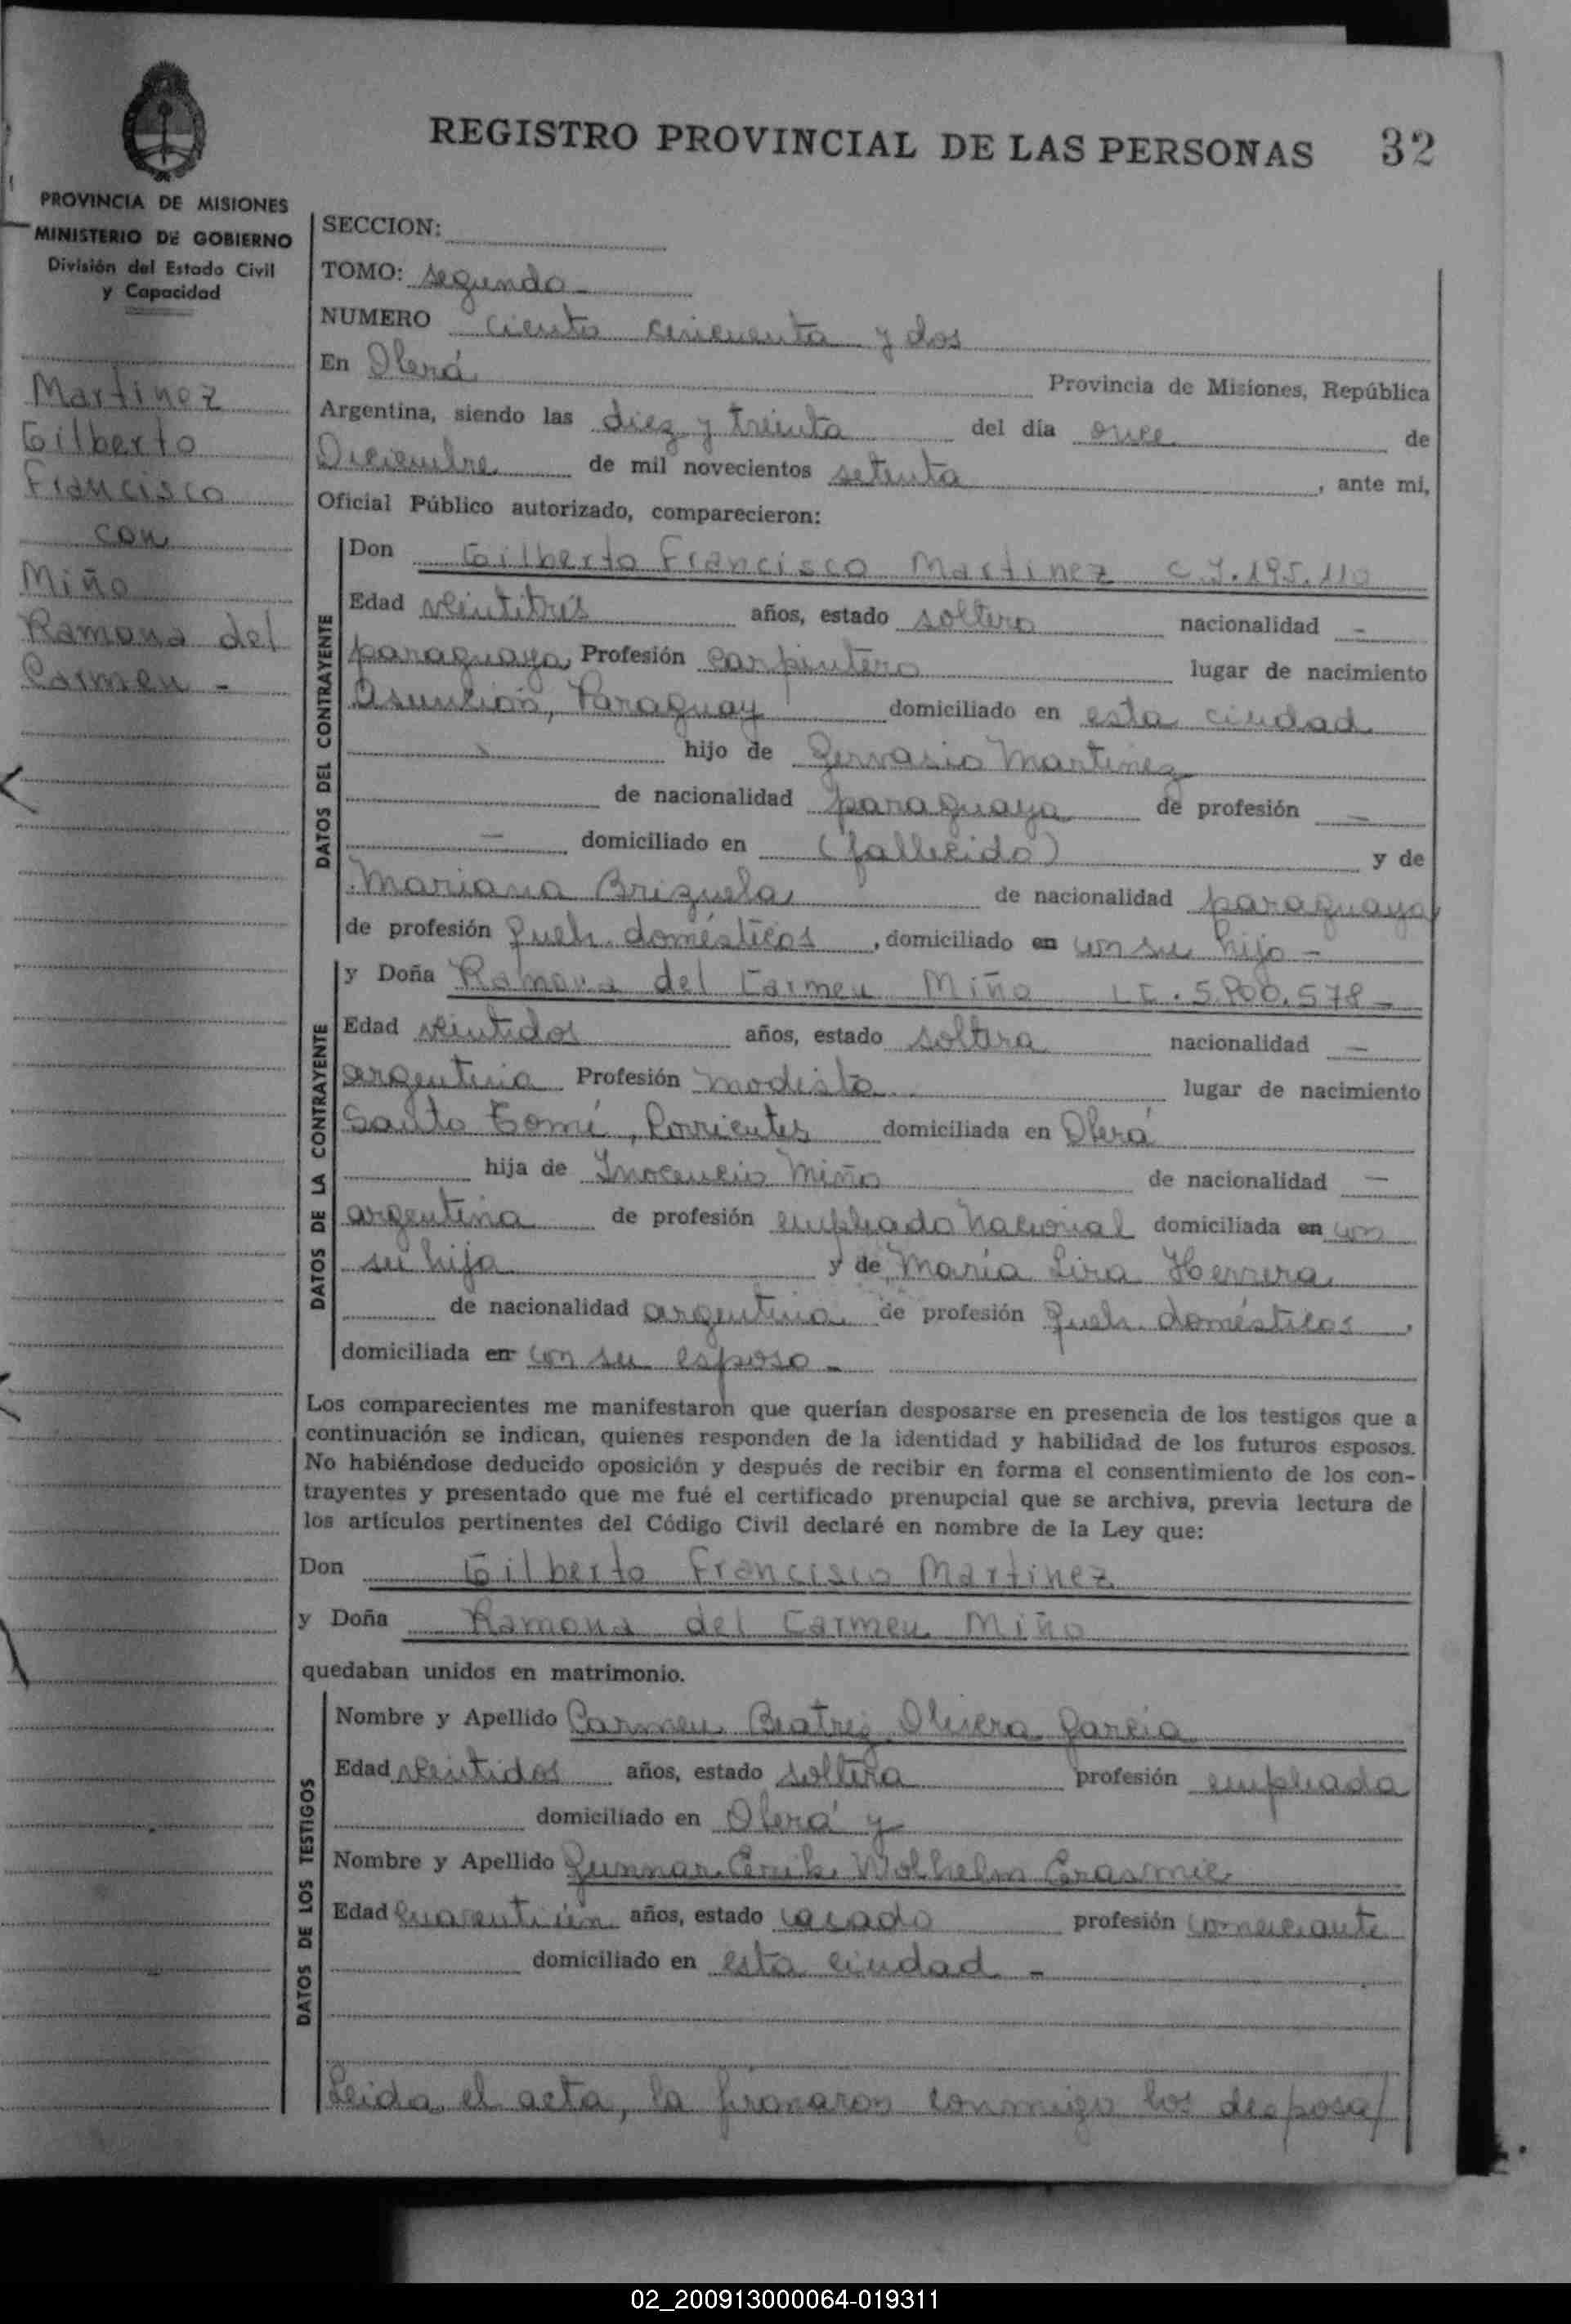 REGISTRO PROVINCIAL DE LAS PERSONAS 32
PROVINCIA DE MISIONES
MINISTERIO DE GOBIERNO
División del Estado Civil
y Capacidad
Martinez
Gilberto
Francisco
con
Miño
Ramona del
Carmen -
SECCION:
TOMO: segundo
NUMERO ciento cincuenta y dos
En Oberá Provincia de Misiones, República
Argentina, siendo las diez y treinta del día once de
Diciembre de mil novecientos setenta, ante mi,
Oficial Público autorizado, comparecieron:
DATOS DEL CONTRAYENTE
Don Gilberto Francisco Martinez C.I. 195.110
Edad veintitrés años, estado soltero nacionalidad -
paraguaya, Profesión carpintero lugar de nacimiento
Asunción, Paraguay domiciliado en esta ciudad
hijo de Gervasio Martinez
de nacionalidad paraguaya de profesión -
- domiciliado en (fallecido) y de
Mariana Brizuela de nacionalidad paraguaya
de profesión Queh. domésticos, domiciliado en con su hijo -
DATOS DE LA CONTRAYENTE
y Doña Ramona del Carmen Miño L.C. 5.900.578 -
Edad veintidos años, estado soltera nacionalidad -
argentina Profesión modista lugar de nacimiento
Santo Tomé, Corrientes domiciliada en Oberá
hija de Inocencio Miño de nacionalidad -
argentina de profesión empleado nacional domiciliada en con
su hija y de María Lira Herrera
de nacionalidad argentina de profesión Queh. domésticos,
domiciliada en con su esposo -
Los comparecientes me manifestaron que querían desposarse en presencia de los testigos que a
continuación se indican, quienes responden de la identidad y habilidad de los futuros esposos.
No habiéndose deducido oposición y después de recibir en forma el consentimiento de los con-
trayentes y presentado que me fué el certificado prenupcial que se archiva, previa lectura de
los artículos pertinentes del Código Civil declaré en nombre de la Ley que:
Don Gilberto Francisco Martinez
y Doña Ramona del Carmen Miño
quedaban unidos en matrimonio.
DATOS DE LOS TESTIGOS
Nombre y Apellido Carmen Beatriz Olivera García
Edad veintidos años, estado soltera profesión empleada
domiciliado en Oberá y
Nombre y Apellido Gunnar Erik Wolhelm Erasmie
Edad cuarentiún años, estado casado profesión comerciante
domiciliado en esta ciudad -
Leida el acta, la firmaron conmigo los desposa/
02_200913000064-019311